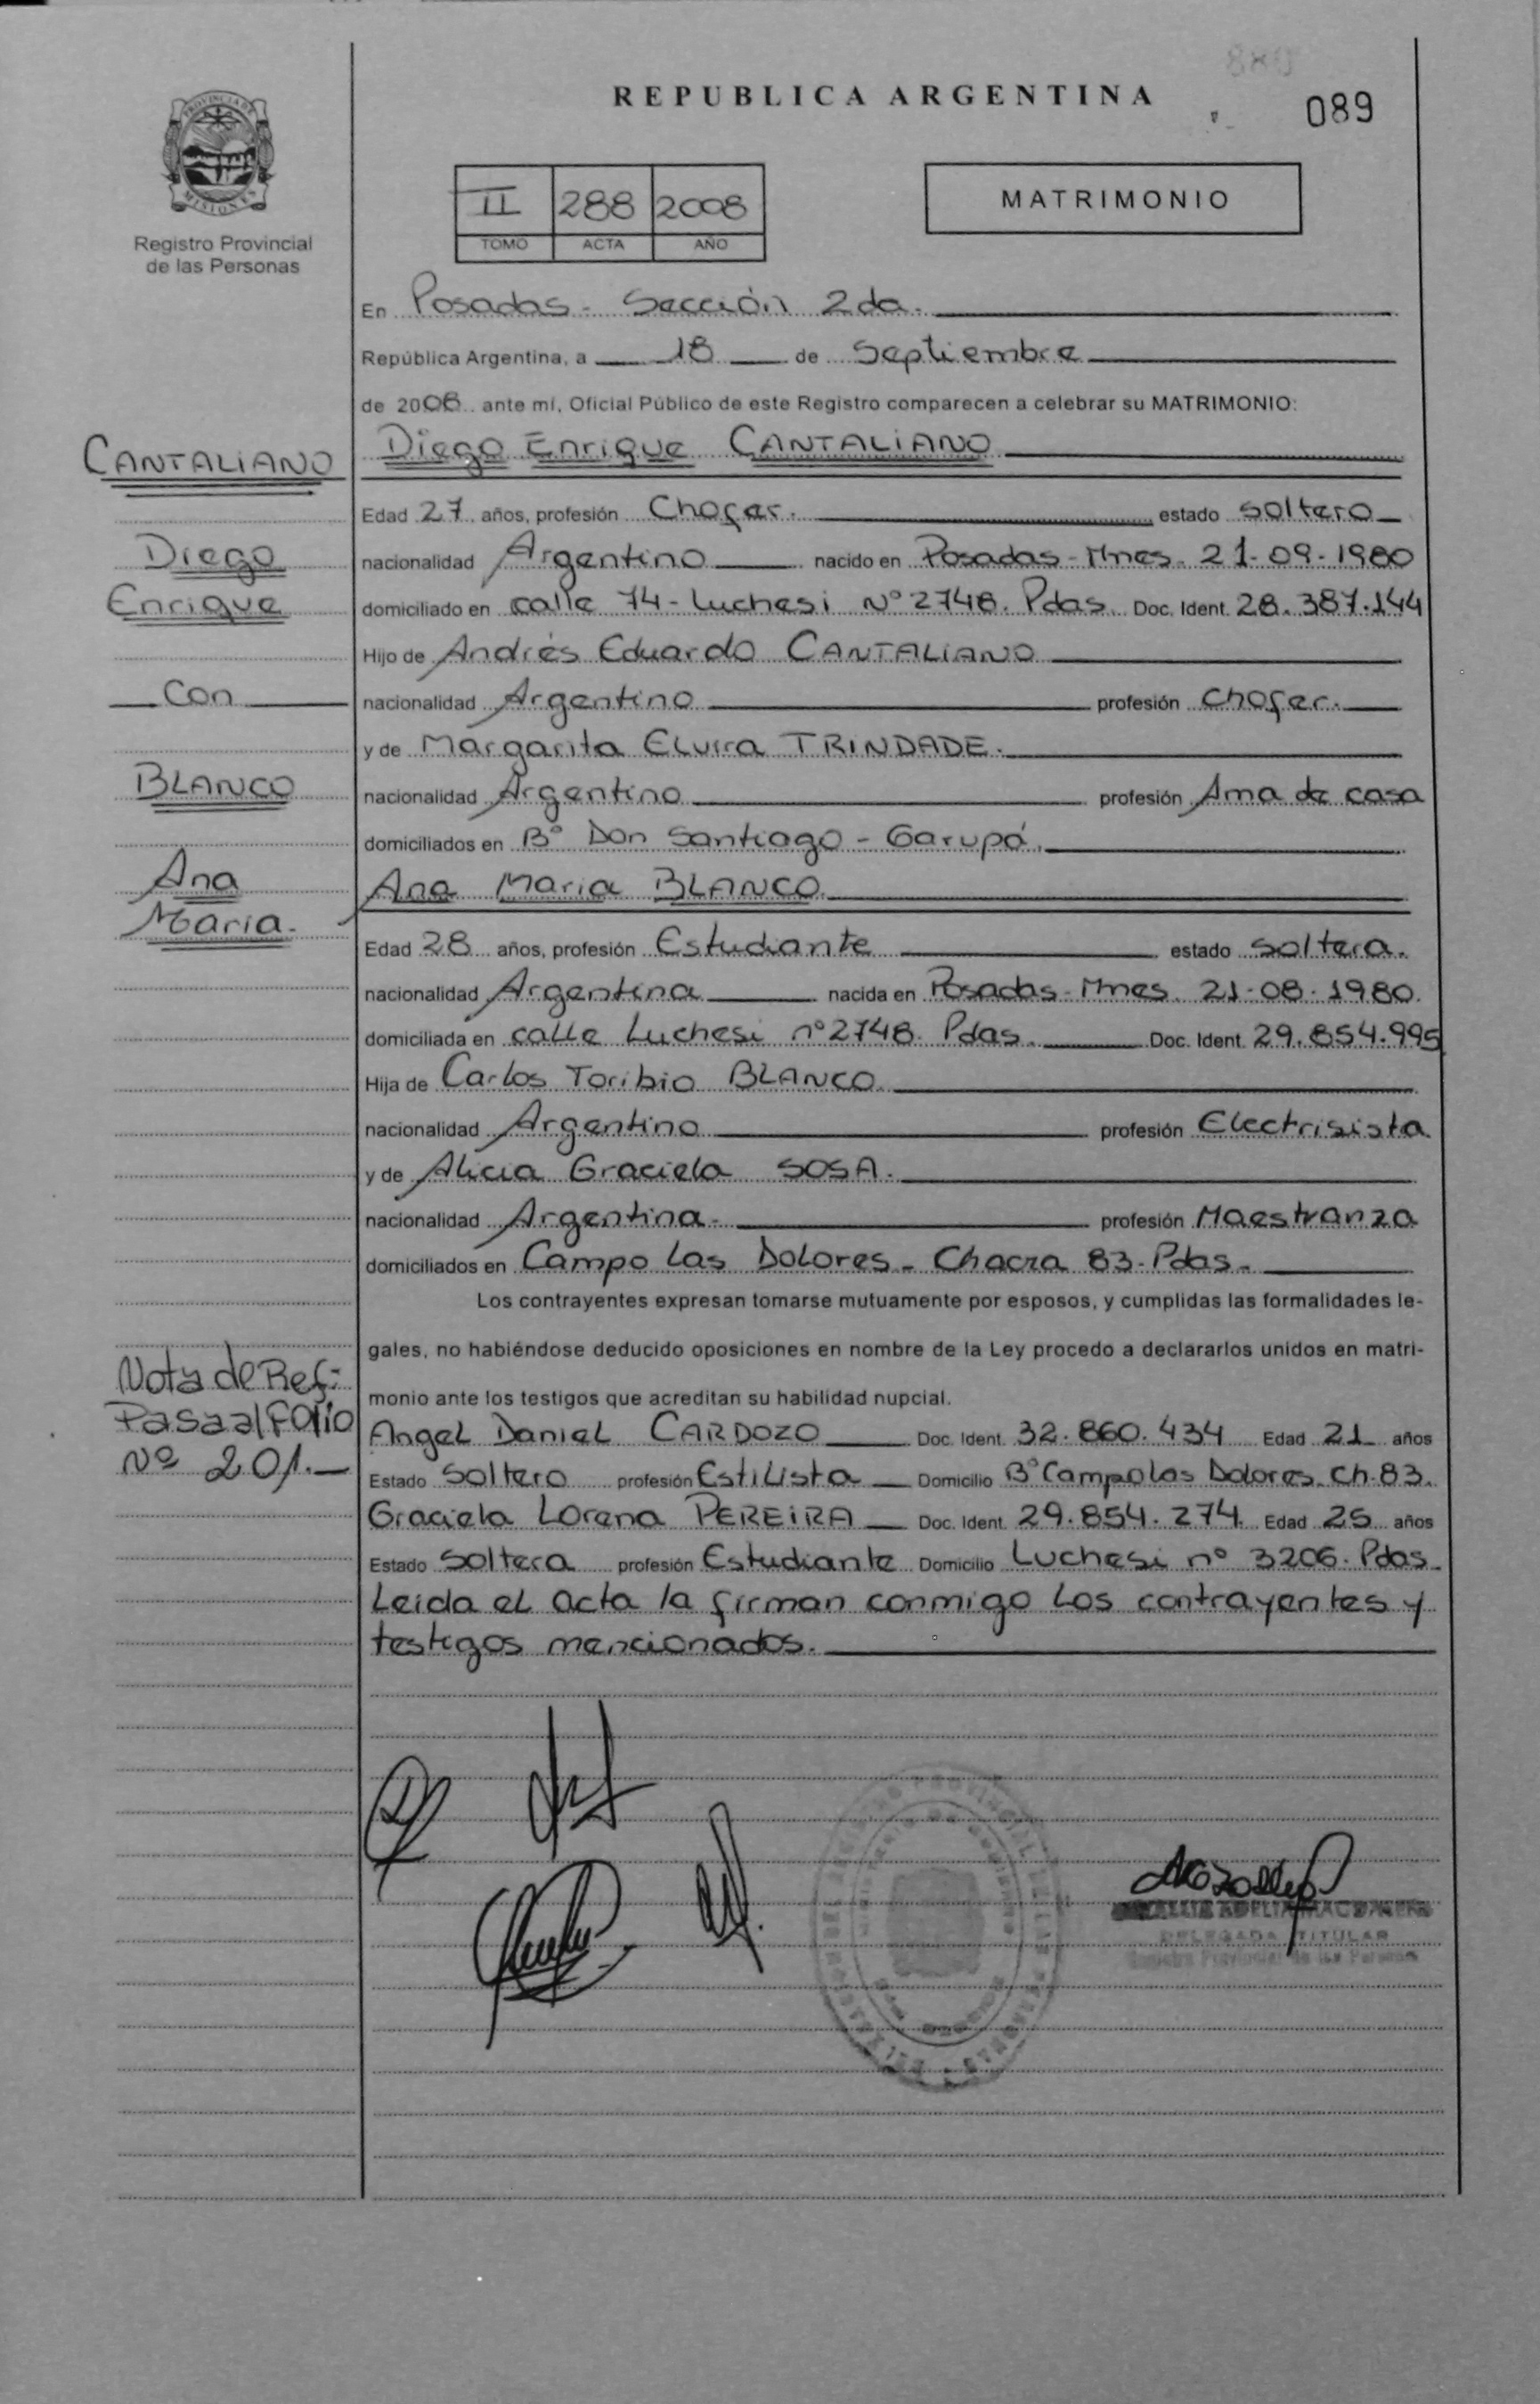 REPUBLICA ARGENTINA
089
PROVINCIA DE
MISIONES
Registro Provincial
de las Personas
II 288 2008
TOMO ACTA AÑO
MATRIMONIO
En Posadas - Sección 2da.
República Argentina, a 18 de Septiembre
de 2008 ante mí, Oficial Público de este Registro comparecen a celebrar su MATRIMONIO:
CANTALIANO
Diego
Enrique
con
BLANCO
Ana
Maria.
Diego Enrique CANTALIANO
Edad 27 años, profesión Chofer. estado soltero
nacionalidad Argentino nacido en Posadas - Mnes. 21-09-1980
domiciliado en calle 74 - Luchesi Nº 2748. Pdas. Doc. Ident. 28.387.144
Hijo de Andrés Eduardo CANTALIANO
nacionalidad Argentino profesión chofer.
y de Margarita Elvira TRINDADE.
nacionalidad Argentino profesión Ama de casa
domiciliados en Bº Don Santiago - Garupá.
Ana Maria BLANCO
Edad 28 años, profesión Estudiante estado soltera.
nacionalidad Argentina nacida en Posadas - Mnes. 21-08-1980.
domiciliada en calle Luchesi nº 2748. Pdas. Doc. Ident. 29.854.995
Hija de Carlos Toribio BLANCO
nacionalidad Argentino profesión Electrisista
y de Alicia Graciela SOSA.
nacionalidad Argentina. profesión Maestranza
domiciliados en Campo Las Dolores - Chacra 83 - Pdas.
Los contrayentes expresan tomarse mutuamente por esposos, y cumplidas las formalidades le-
gales, no habiéndose deducido oposiciones en nombre de la Ley procedo a declararlos unidos en matri-
monio ante los testigos que acreditan su habilidad nupcial.
Nota de Ref:
Pasa al Folio
Nº 201.
Angel Daniel CARDOZO Doc. Ident. 32.860.434 Edad 21 años
Estado Soltero profesión Estilista Domicilio Bº Campo Las Dolores. Ch. 83.
Graciela Lorena PEREIRA Doc. Ident. 29.854.274 Edad 25 años
Estado Soltera profesión Estudiante Domicilio Luchesi nº 3206. Pdas.
Leida el acta la firman conmigo los contrayentes y
testigos mencionados.
DELEGADA TITULAR
Registro Provincial de las Personas